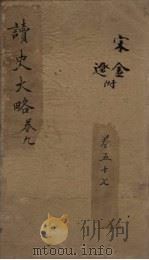 宋金
遼附
卷五十七
讀史大略卷九